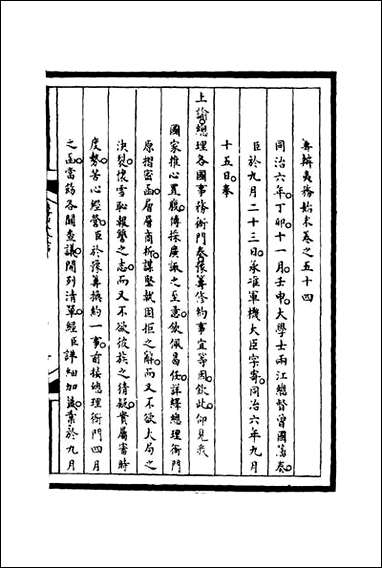 籌辦夷務始末卷之五十四
同治六年丁卯十一月壬申大學士兩江總督曾國藩奏
臣於九月二十三日承准軍機大臣字寄同治六年九月
十五日奉
上諭總理各國事務衙門奏豫籌修約事宜等因欽此仰見我
國家推心置腹博採廣諏之至意欽佩曷任詳繹總理衙門
原摺密函層層商折謀堅執固拒之解而又不欲大局之
決裂懷雪恥報讐之志而又不欲彼族之猜疑實屬審時
度勢苦心經營臣於豫籌換約一事前接總理衙門四月
之函當飭各關查議開列清單經臣詳細加簽業於九月